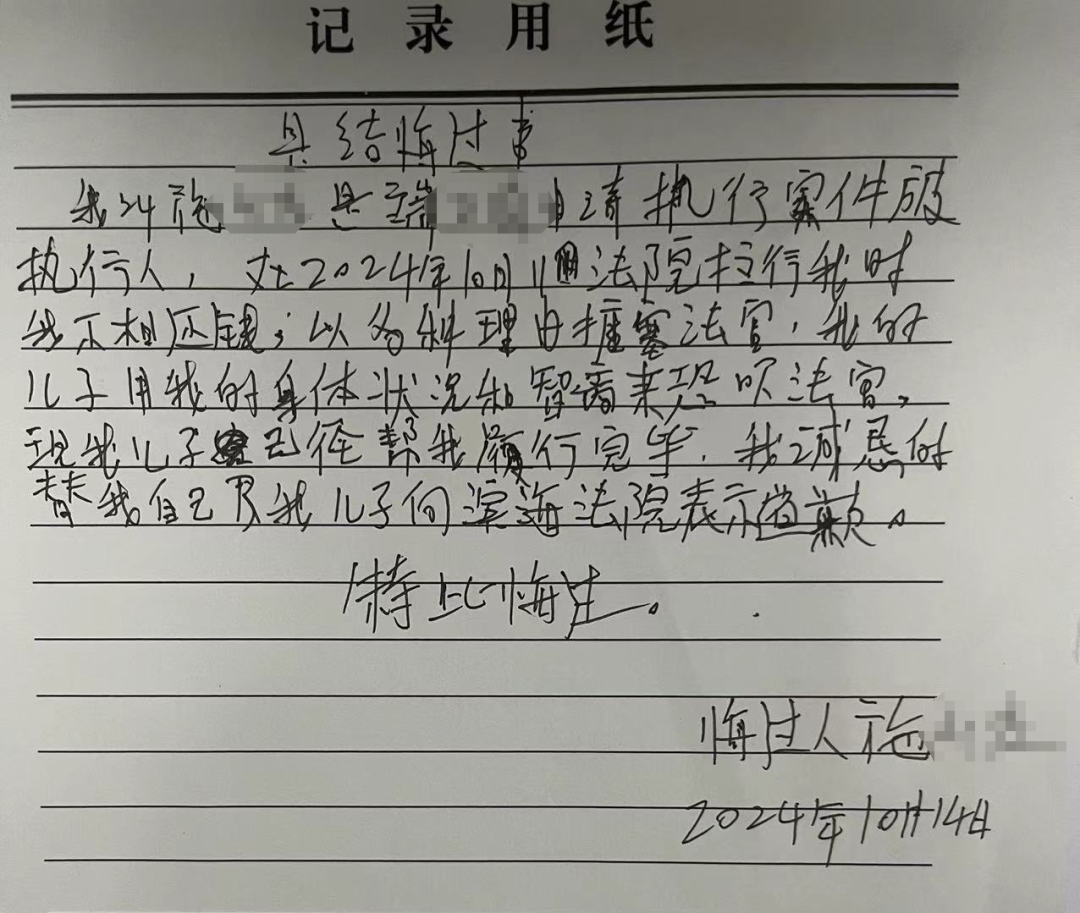 记录用纸
具结悔过书
我叫施 是瑞 申请执行案件被
执行人，在2024年10月11日法院拉行我时
我不想还钱，以各种理由搪塞法官，我的
儿子用我的身体状况和智商来恐吹法官。
现我儿子已经帮我履行完毕．我诚恳的
替我自己及我儿子向滨海法院表示道歉。
特此悔过。
悔过人施
2024年10月14日